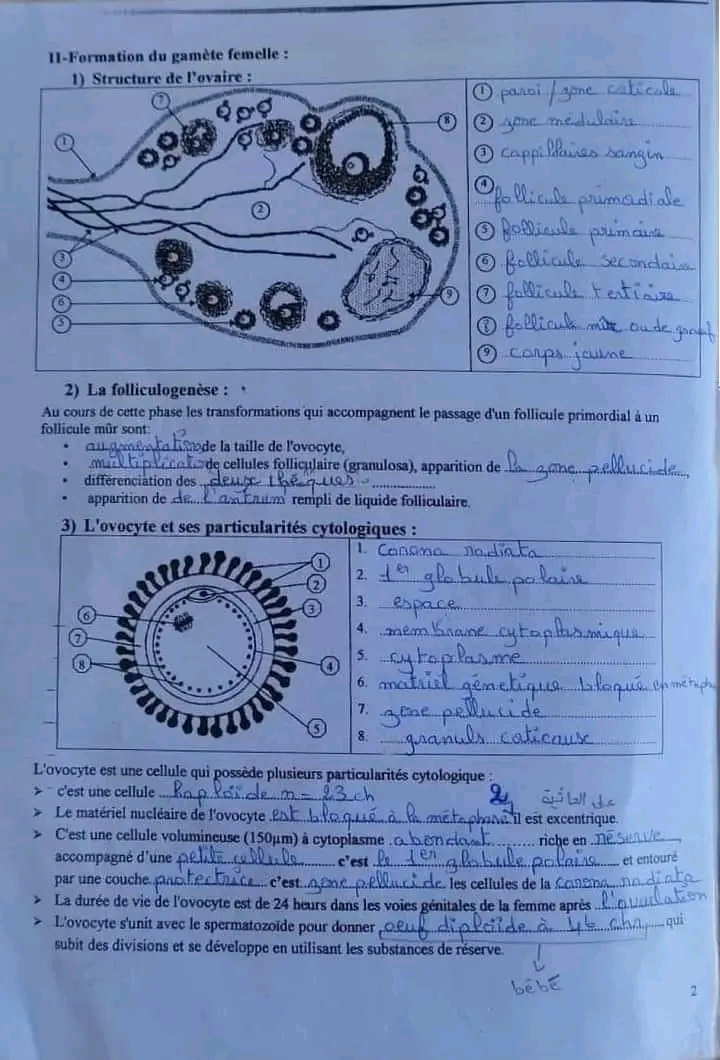 II-Formation du gamète femelle :
1) Structure de l'ovaire :
① paroi / zone coticale
② zone médulaire
③ cappilaires sangin
④ follicule primodiale
⑤ follicule primaire
⑥ follicule secondaire
⑦ follicule tertiaire
⑧ follicule mûr ou de graaf
⑨ corps jaune
2) La folliculogenèse :
Au cours de cette phase les transformations qui accompagnent le passage d'un follicule primordial à un
follicule mûr sont:
• augmentation de la taille de l'ovocyte,
• multiplication de cellules folliculaire (granulosa), apparition de la zone pellucide
• différenciation des deux thèques
• apparition de de l'antrum rempli de liquide folliculaire.
3) L'ovocyte et ses particularités cytologiques :
1. Corona radiata
2. 1er globule polaire
3. espace
4. membrane cytoplasmique
5. cytoplasme
6. matriel génetique bloqué en métaph
7. zone pellucide
8. granuls coticause
L'ovocyte est une cellule qui possède plusieurs particularités cytologique :
➤ c'est une cellule haploïde n = 23 ch
➤ Le matériel nucléaire de l'ovocyte est bloqué à la métaphase 2, il est excentrique.
➤ C'est une cellule volumineuse (150µm) à cytoplasme abondant riche en réserve
accompagné d'une petite cellule c'est le 1er globule polaire et entouré
par une couche protectrice c'est zone pellucide les cellules de la corona radiata
➤ La durée de vie de l'ovocyte est de 24 heures dans les voies génitales de la femme après l'ovulation
➤ L'ovocyte s'unit avec le spermatozoïde pour donner oeuf diploïde à 46 chr qui
subit des divisions et se développe en utilisant les substances de réserve.
bébé
2